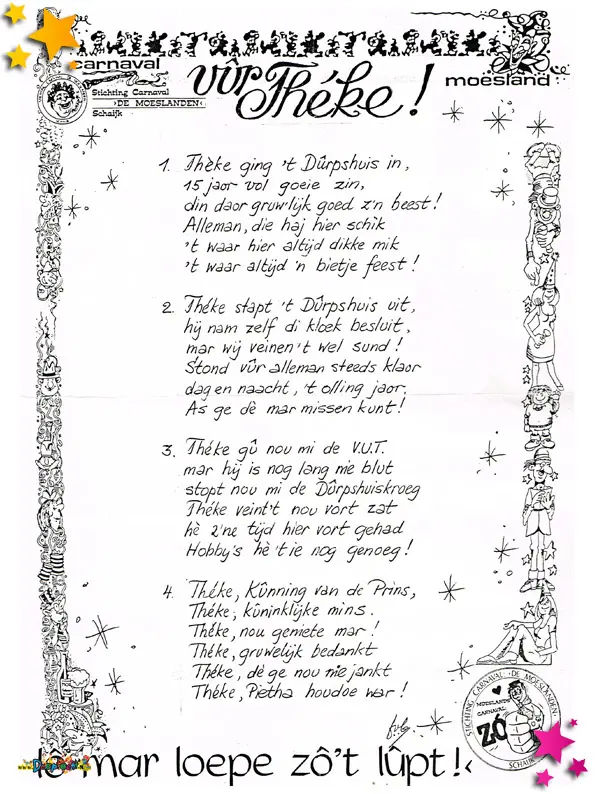 carnaval
Stichting Carnaval
›DE MOESLANDEN‹
Schaijk
vûr Théke!
moesland
1. Thèke ging 't Dûrpshuis in,
15 jaor vol goeie zin,
din daor gruw'lijk goed z'n beest!
Alleman, die haj hier schik
't waar hier altijd dikke mik
't waar altijd 'n bietje feest!
2. Théke stapt 't Dûrpshuis uit,
hij nam zelf di kloek besluit,
mar wij veinen 't wel sund!
Stond vûr alleman steeds klaor
dag en naacht, 't olling jaor.
As ge dè mar missen kunt!
3. Théke gû nou mi de V.U.T.
mar hij is nog lang nie blut
stopt nou mi de Dûrpshuiskroeg
Théke veint't nou vort zat
hè z'ne tijd hier vort gehad
Hobby's hè 't ie nog genoeg!
4. Théke, Kûnning van de Prins,
Théke, kûninklijke mins.
Théke, nou geniete mar!
Théke, gruwelijk bedankt
Théke, dè ge nou nie jankt
Théke, Pietha houdoe war!
STICHTING CARNAVAL ›DE MOESLANDEN‹
MOESLANDS
CARNAVAL
ZÓ
SCHAIJK
mar loepe zô't lûpt!‹